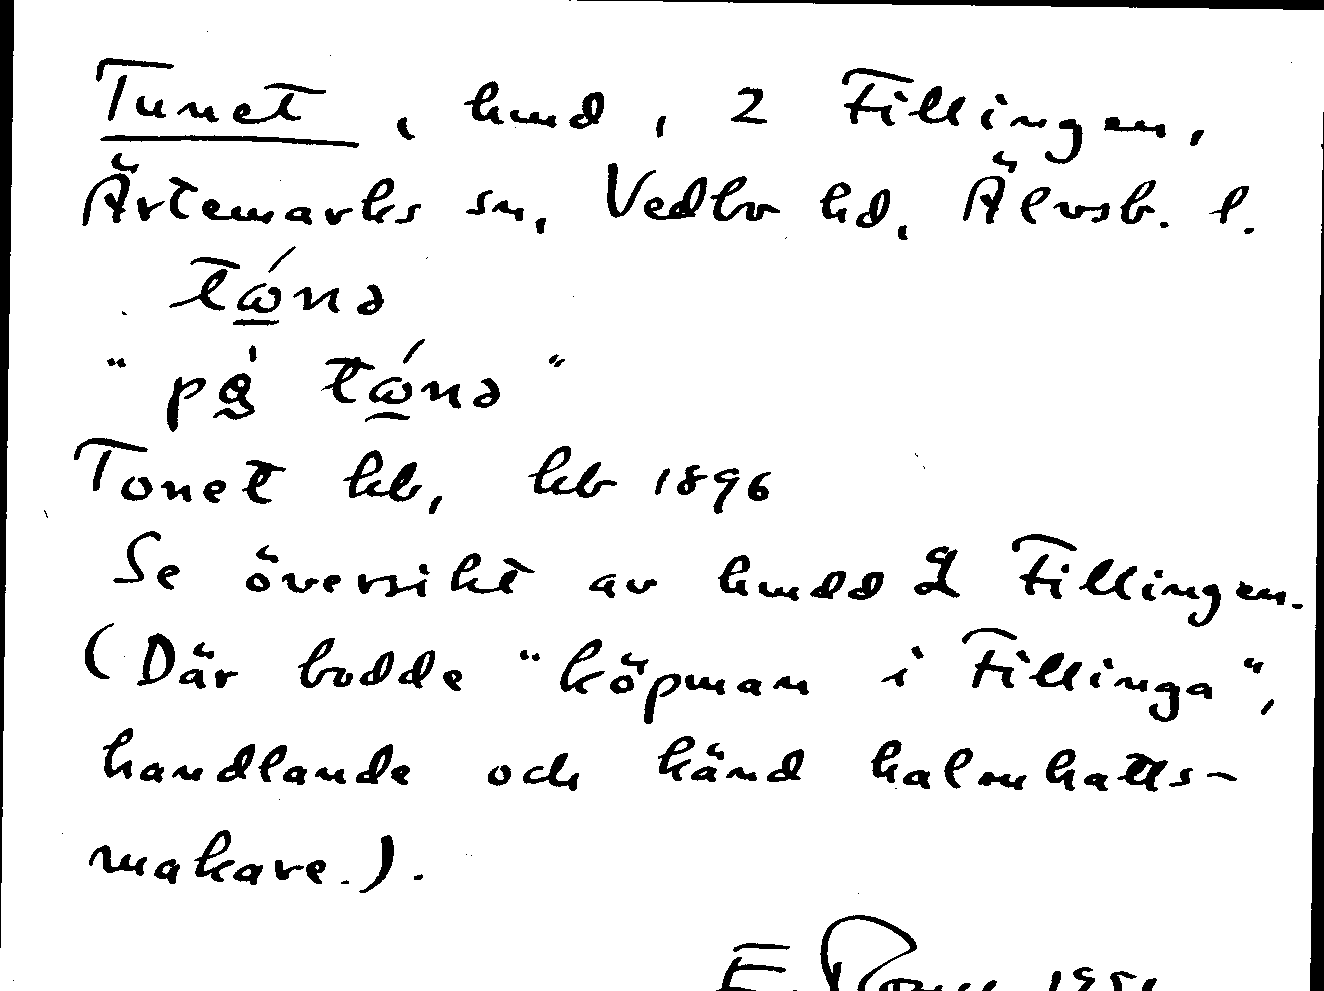 Tunet, hmd, 2 Fillingen,
Ärtemarks sn, Vedbo hd, Älvsb. l.
tώnə
"på̀ tώnə"
Tonet hb, kb 1896
Se översikt av hmdd 2 Fillingen.
(Där bodde "köpman i Fillinga",
handlande och känd halmhatts-
makare.).
E.